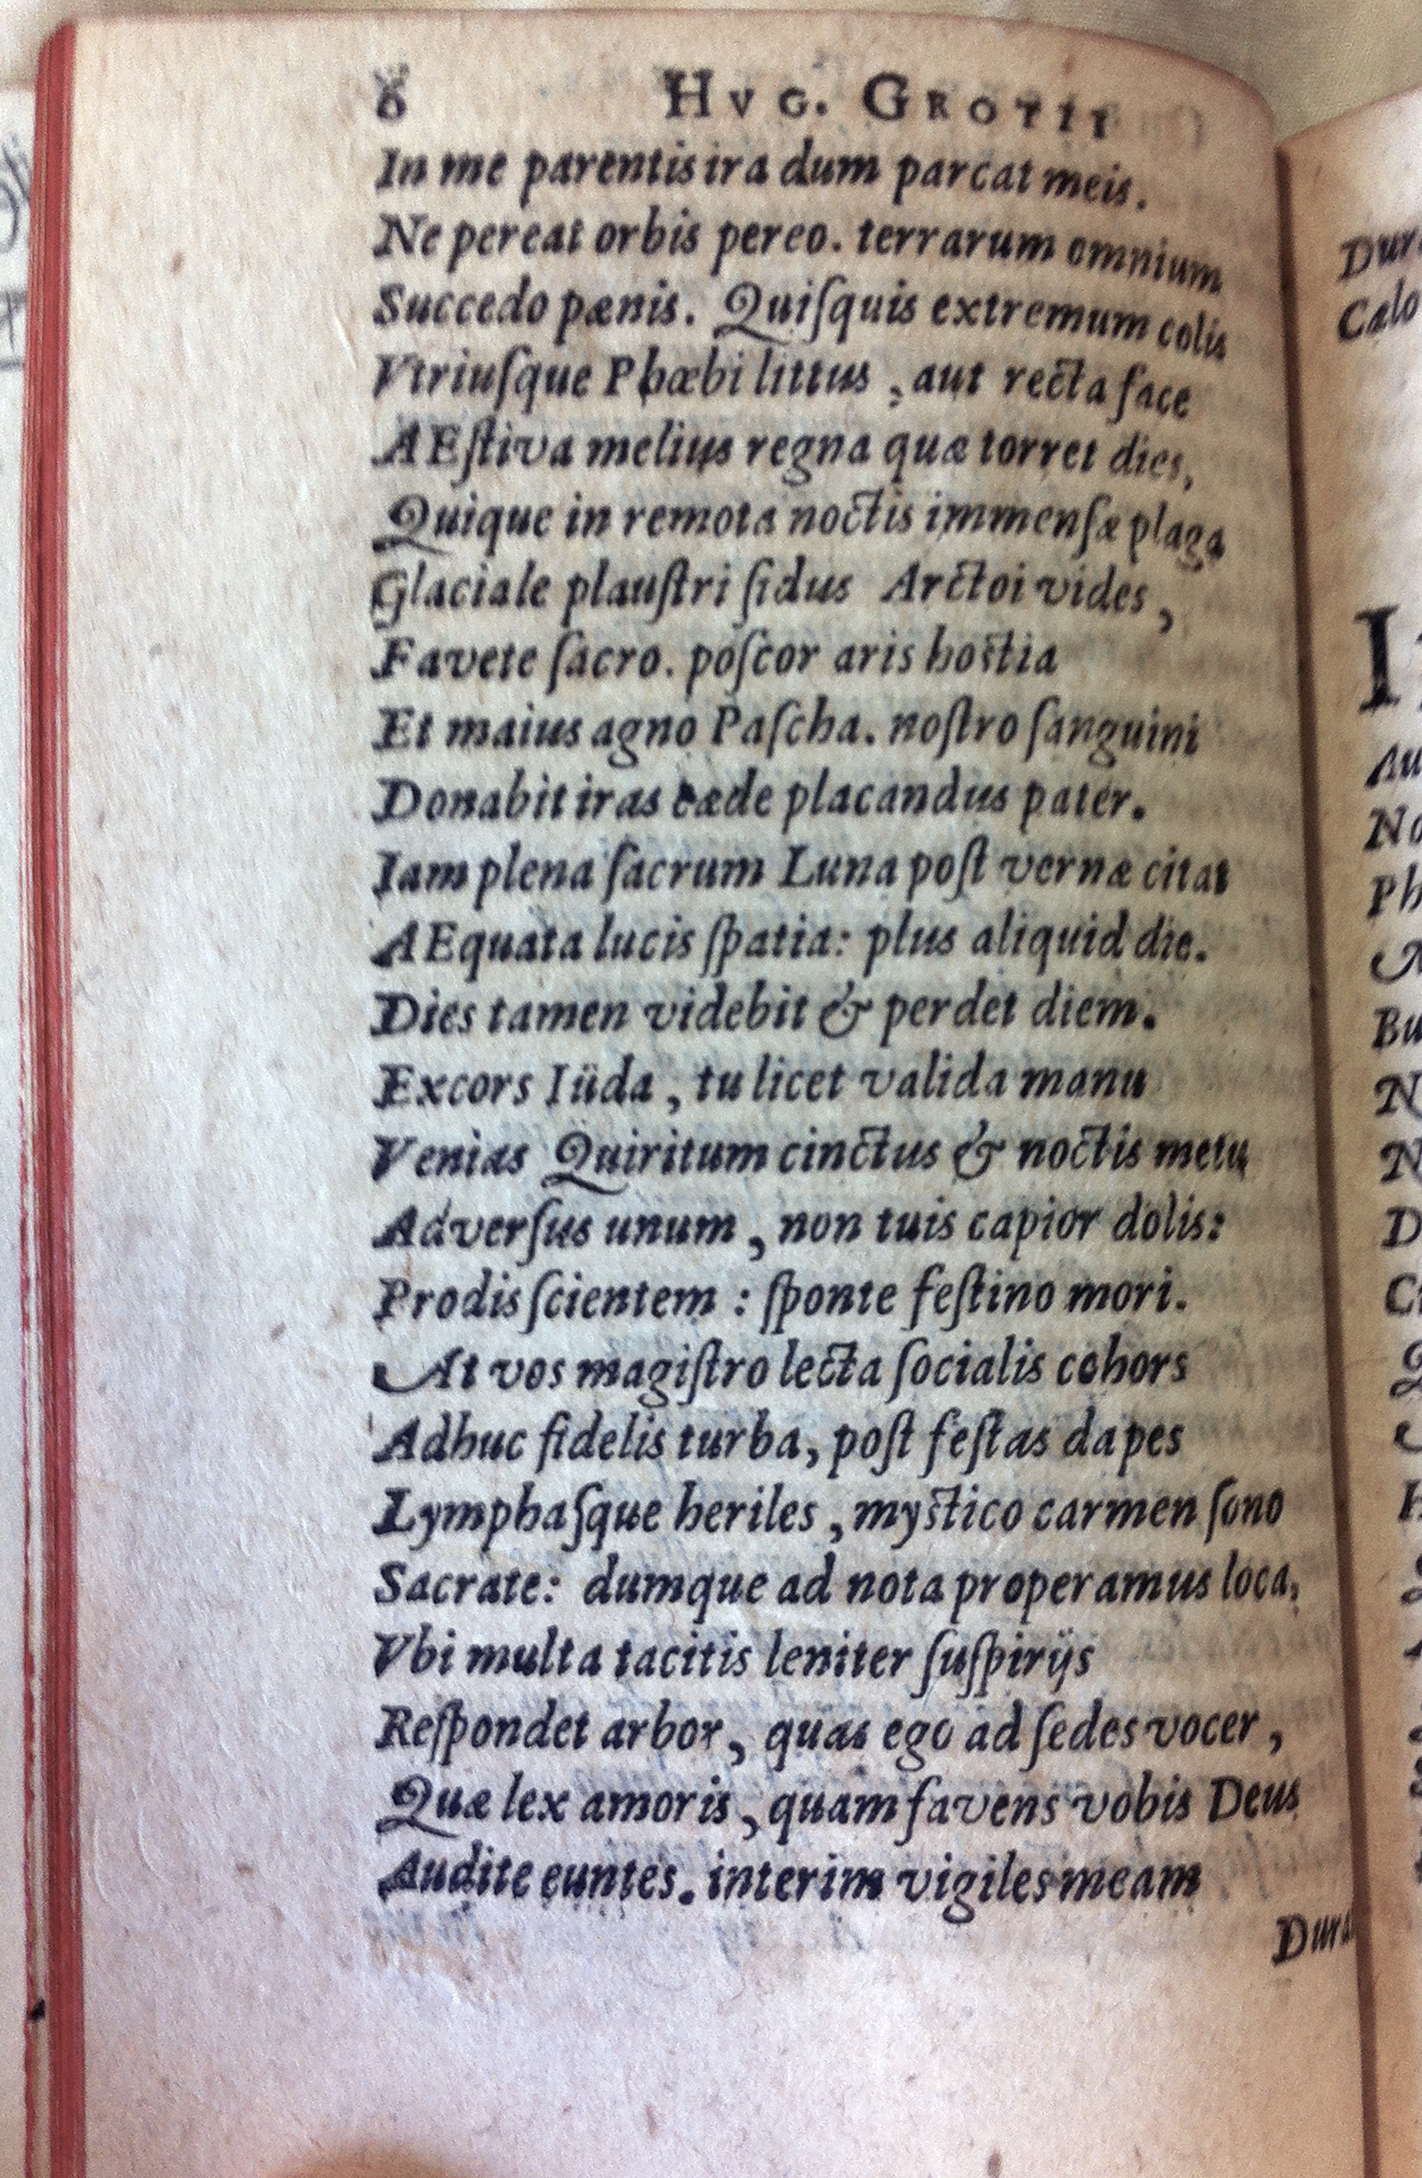 8 HVG. GROTII
In me parentis ira dum parcat meis.
Ne pereat orbis pereo. terrarum omnium
Succedo pœnis. Quiſquis extremum colis
Vtriuſque Phœbi littus, aut recta face
AEſtiva melius regna quæ torret dies,
Quique in remota noctis immenſæ plaga
Glaciale plauſtri ſidus Arctoi vides,
Favete ſacro. poſcor aris hostia
Et maius agno Paſcha. noſtro ſanguini
Donabit iras cæde placandus pater.
Iam plena ſacrum Luna poſt vernæ citat
AEquata lucis ſpatia: plus aliquid die.
Dies tamen videbit & perdet diem.
Excors Iüda, tu licet valida manu
Venias Quiritum cinctus & noctis metu
Adverſus unum, non tuis capior dolis:
Prodis ſcientem: ſponte feſtino mori.
At vos magiſtro lecta ſocialis cohors
Adhuc fidelis turba, poſt feſtas dapes
Lymphaſque heriles, mystico carmen ſono
Sacrate: dumque ad nota properamus loca,
Vbi multa tacitis leniter ſuſpirijs
Reſpondet arbor, quas ego ad ſedes vocer,
Quæ lex amoris, quam favens vobis Deus
Audite euntes. interim vigiles meam
Dura